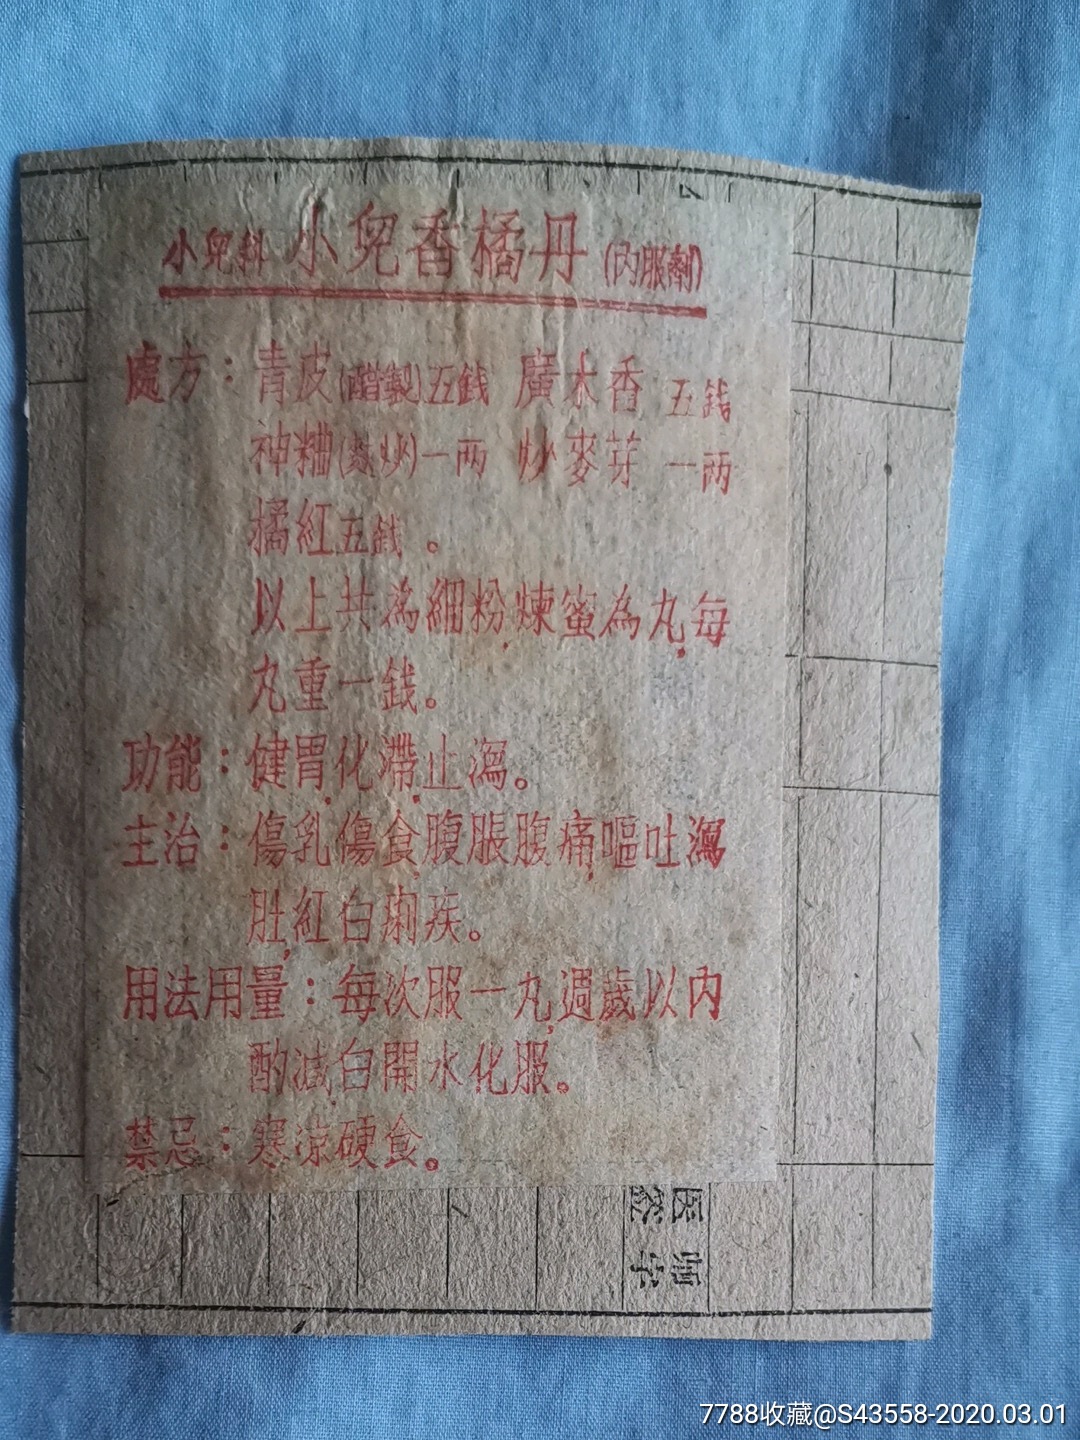 小兒科 小兒香橘丹 (內服劑)
處方：青皮(醋製)五錢 廣木香 五錢
神糟(麸炒)一两 炒麥芽 一两
橘紅五錢。
以上共為細粉,煉蜜為丸,每
丸重一錢。
功能：健胃,化滯,止瀉。
主治：傷乳,傷食,腹脹腹痛,嘔吐瀉
肚,紅白痢疾。
用法用量：每次服一丸,週歲以內
酌减,白開水化服。
禁忌：寒涼硬食。
医師
签字
7788收藏@S43558-2020.03.01